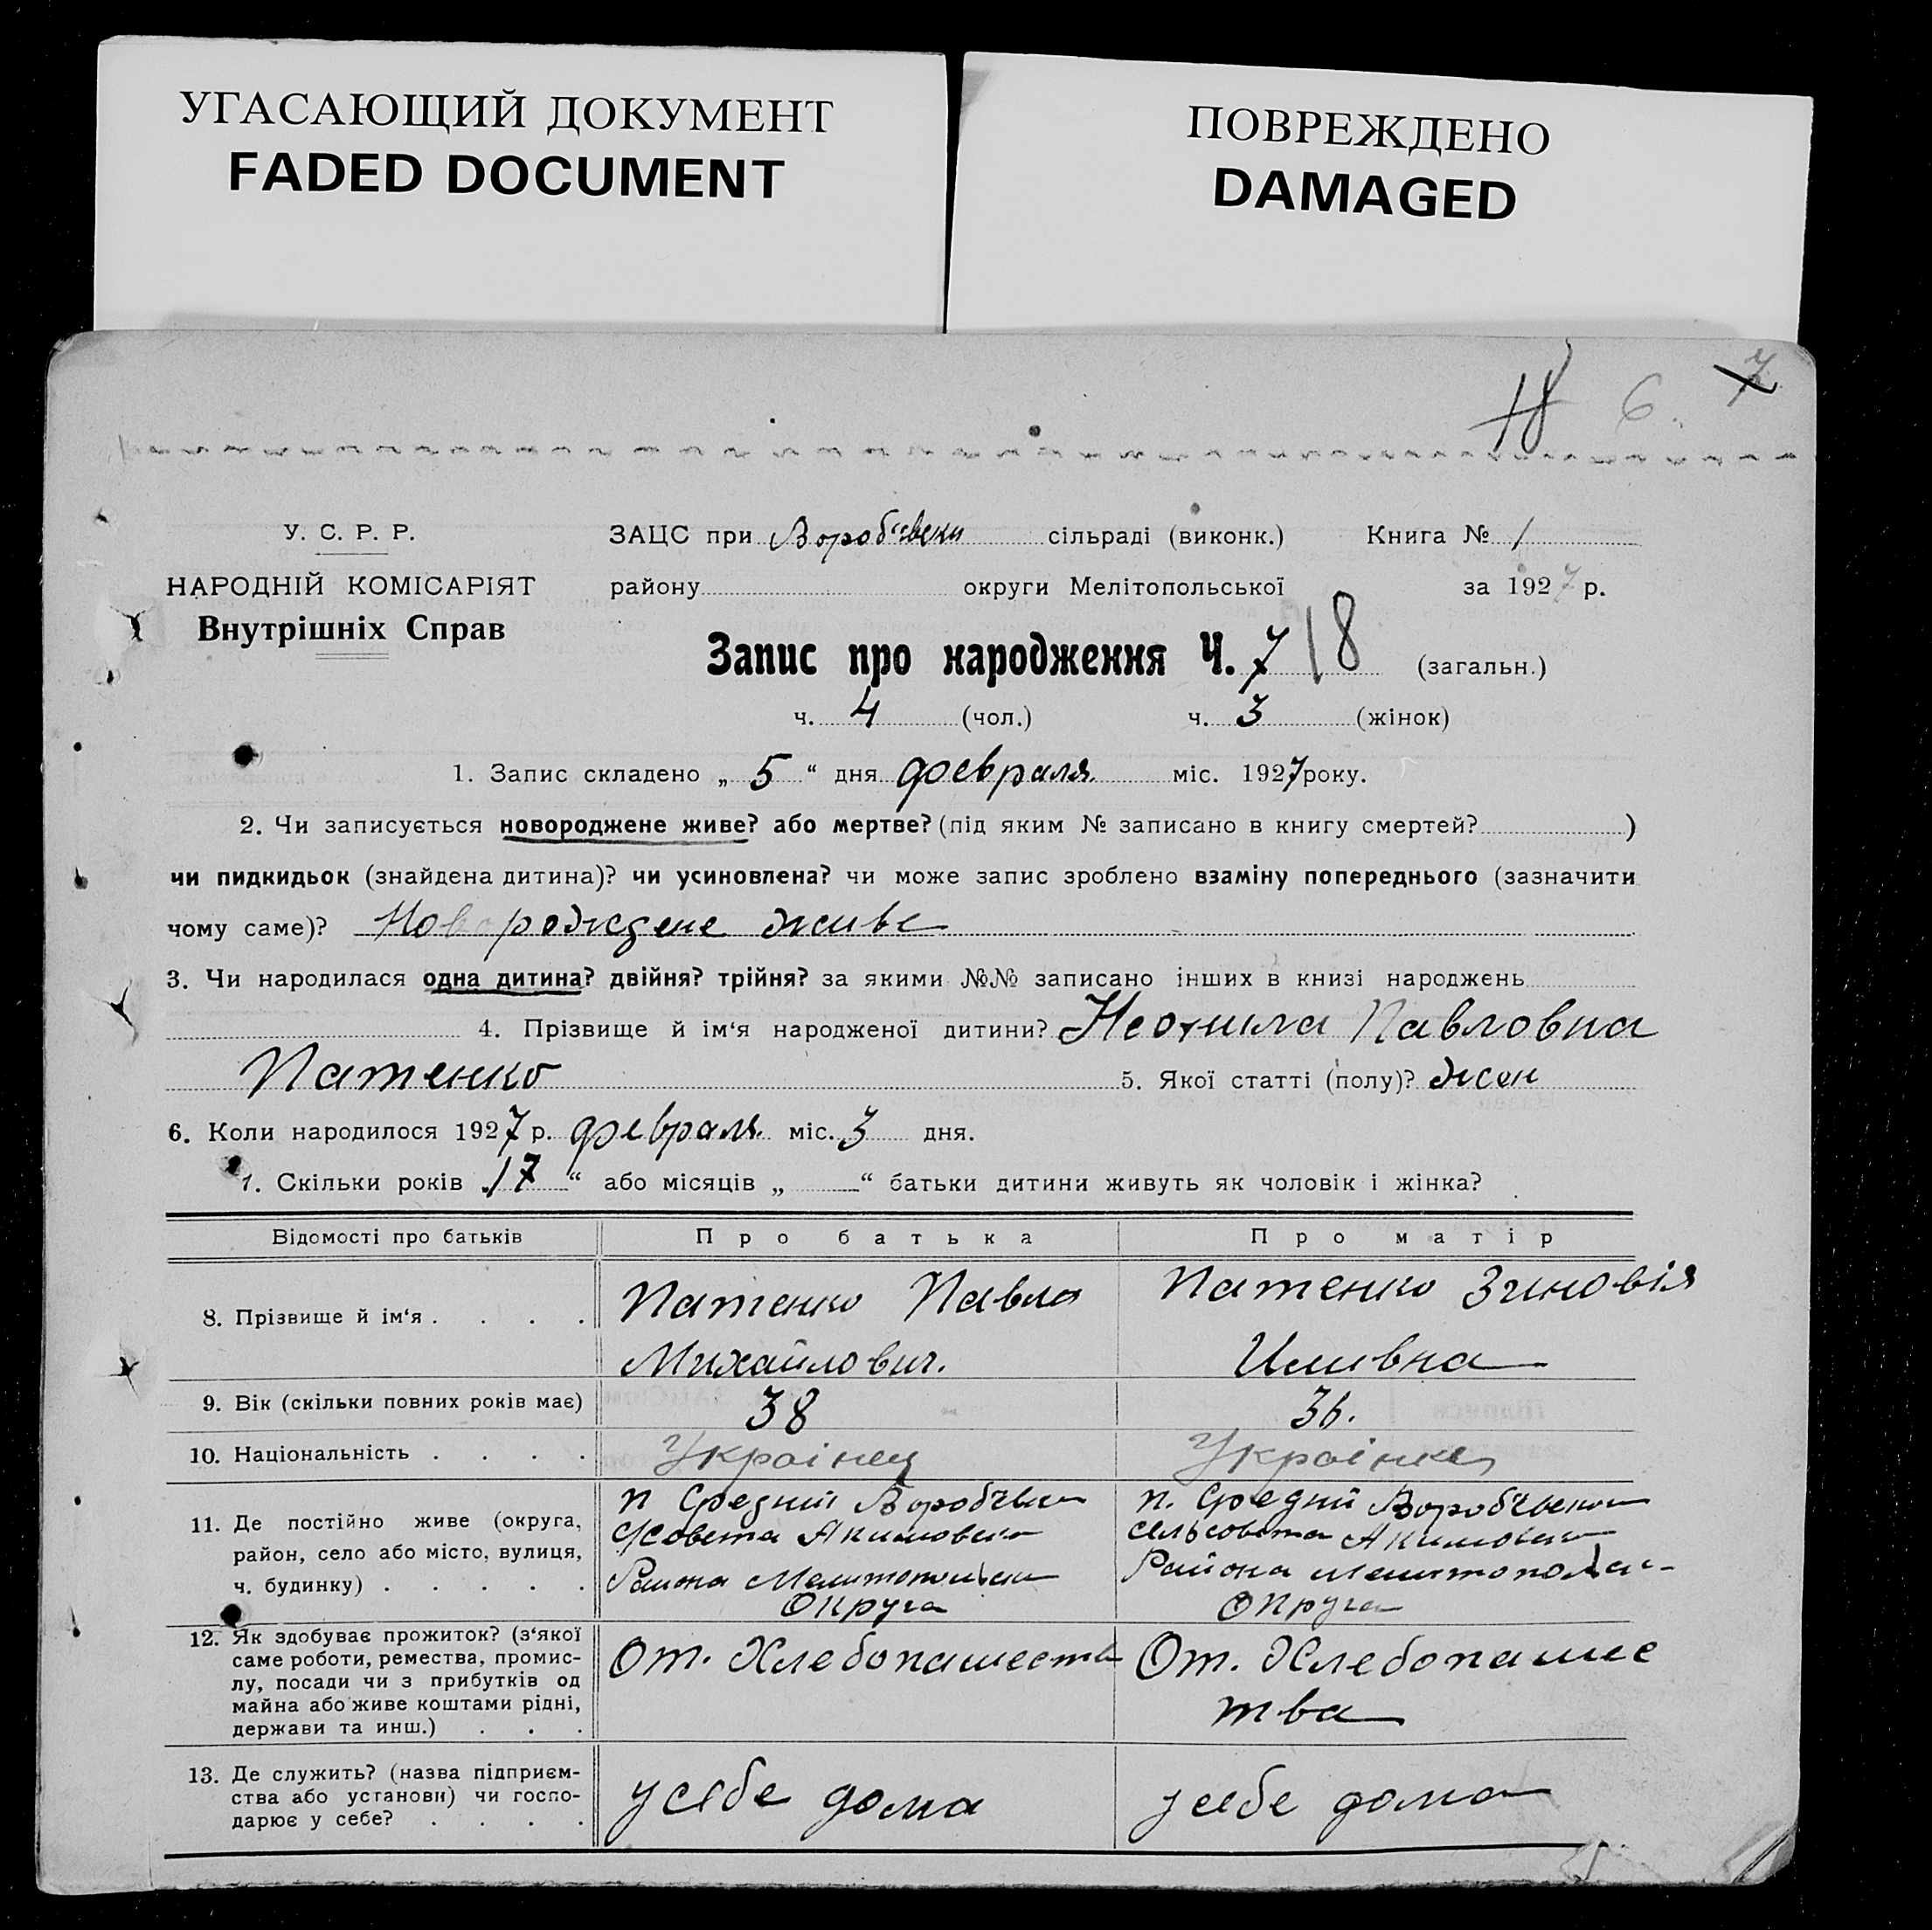 УГАСАЮЩИЙ ДОКУМЕНТ
FADED DOCUMENT
ПОВРЕЖДЕНО
DAMAGED
18 6. 7
У. С. Р. Р. ЗАЦС при сільраді (виконк.) Книга № 1
НАРОДНІЙ КОМІСАРІЯТ району округи Мелітопольської за 1927 р.
Внутрішніх Справ
Запис про народження Ч. 7 18 (загальн.)
ч. 4 (чол.) ч. 3 (жінок)
1. Запис складено „ 5 “ дня февраля міс. 1927 року.
2. Чи записується новороджене живе? або мертве? (під яким № записано в книгу смертей? )
чи пидкидьок (знайдена дитина)? чи усиновлена? чи може запис зроблено взаміну попереднього (зазначити
чому саме)? Новорождене живе
3. Чи народилася одна дитина? двійня? трійня? за якими №№ записано інших в книзі народжень
4. Прізвище й ім‘я народженої дитини? Неонила Павловна
Патенко 5. Якої статті (полу)? жен
6. Коли народилося 1927 р. февраля міс. 3 дня.
7. Скільки років „ 17 “ або місяців „ “ батьки дитини живуть як чоловік і жінка?
Відомості про батьків Про батька Про матір
8. Прізвище й ім‘я . . . . Патенко Павло Патенко Зиновія
Михайлович. Иливна
9. Вік (скільки повних років має) 38 36.
10. Національність . . . . Украінец Украінка
11. Де постійно живе (округа, п Средний п. Средний
район, село або місто, вулиця, с/совета Акимовск сельсовета Акимовск
ч. будинку) . . . . . Района Мелитопольск Района Мелитопольск-
Округа Округа
12. Як здобуває прожиток? (з‘якої
саме роботи, ремества, промис- От. Хлебопашества От. Хлебопашес
лу, посади чи з прибутків од
майна або живе коштами рідні, тва
держави та инш.) . . .
13. Де служить? (назва підприєм-
ства або установи) чи госпо- у себе дома у себе дома
дарює у себе? . . . .